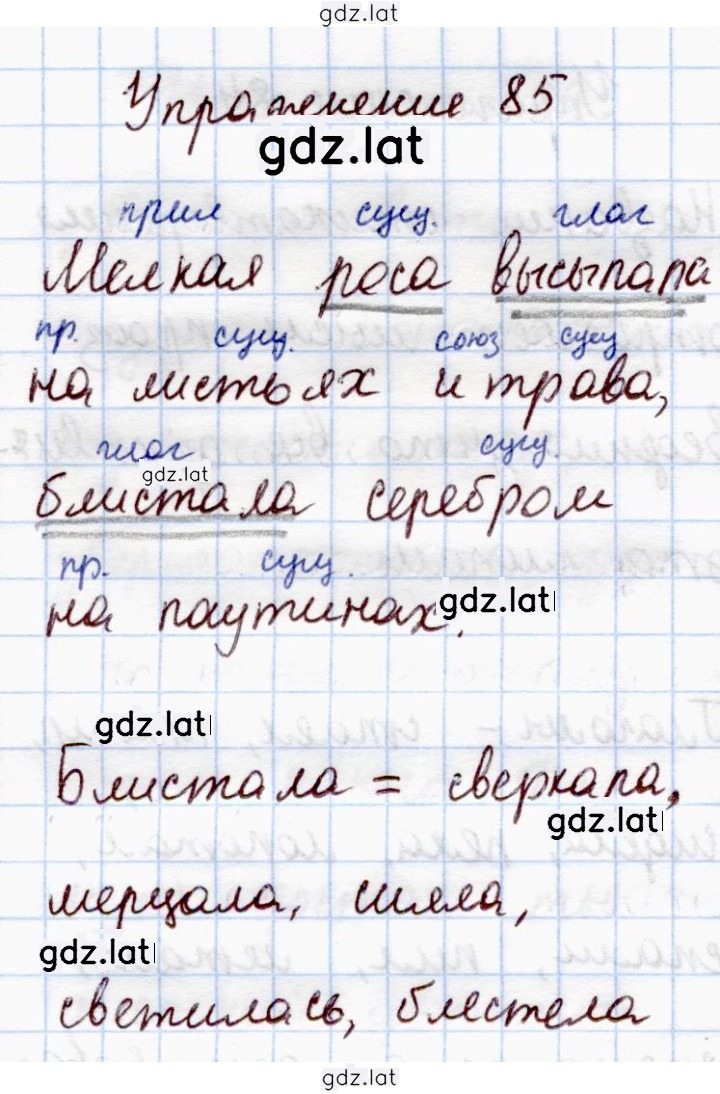 gdz.lat
Упражнение 85
gdz.lat
прил сущ. глаг
Мелкая роса высыпала
пр. сущ. союз сущ
на листьях и трава,
глаг сущ.
gdz.lat
блистала серебром
пр. сущ.
на паутинах.
gdz.lat
gdz.lat
Блистала = сверкала,
gdz.lat
мерцала, сияла,
gdz.lat
светилась, блестела
gdz.lat